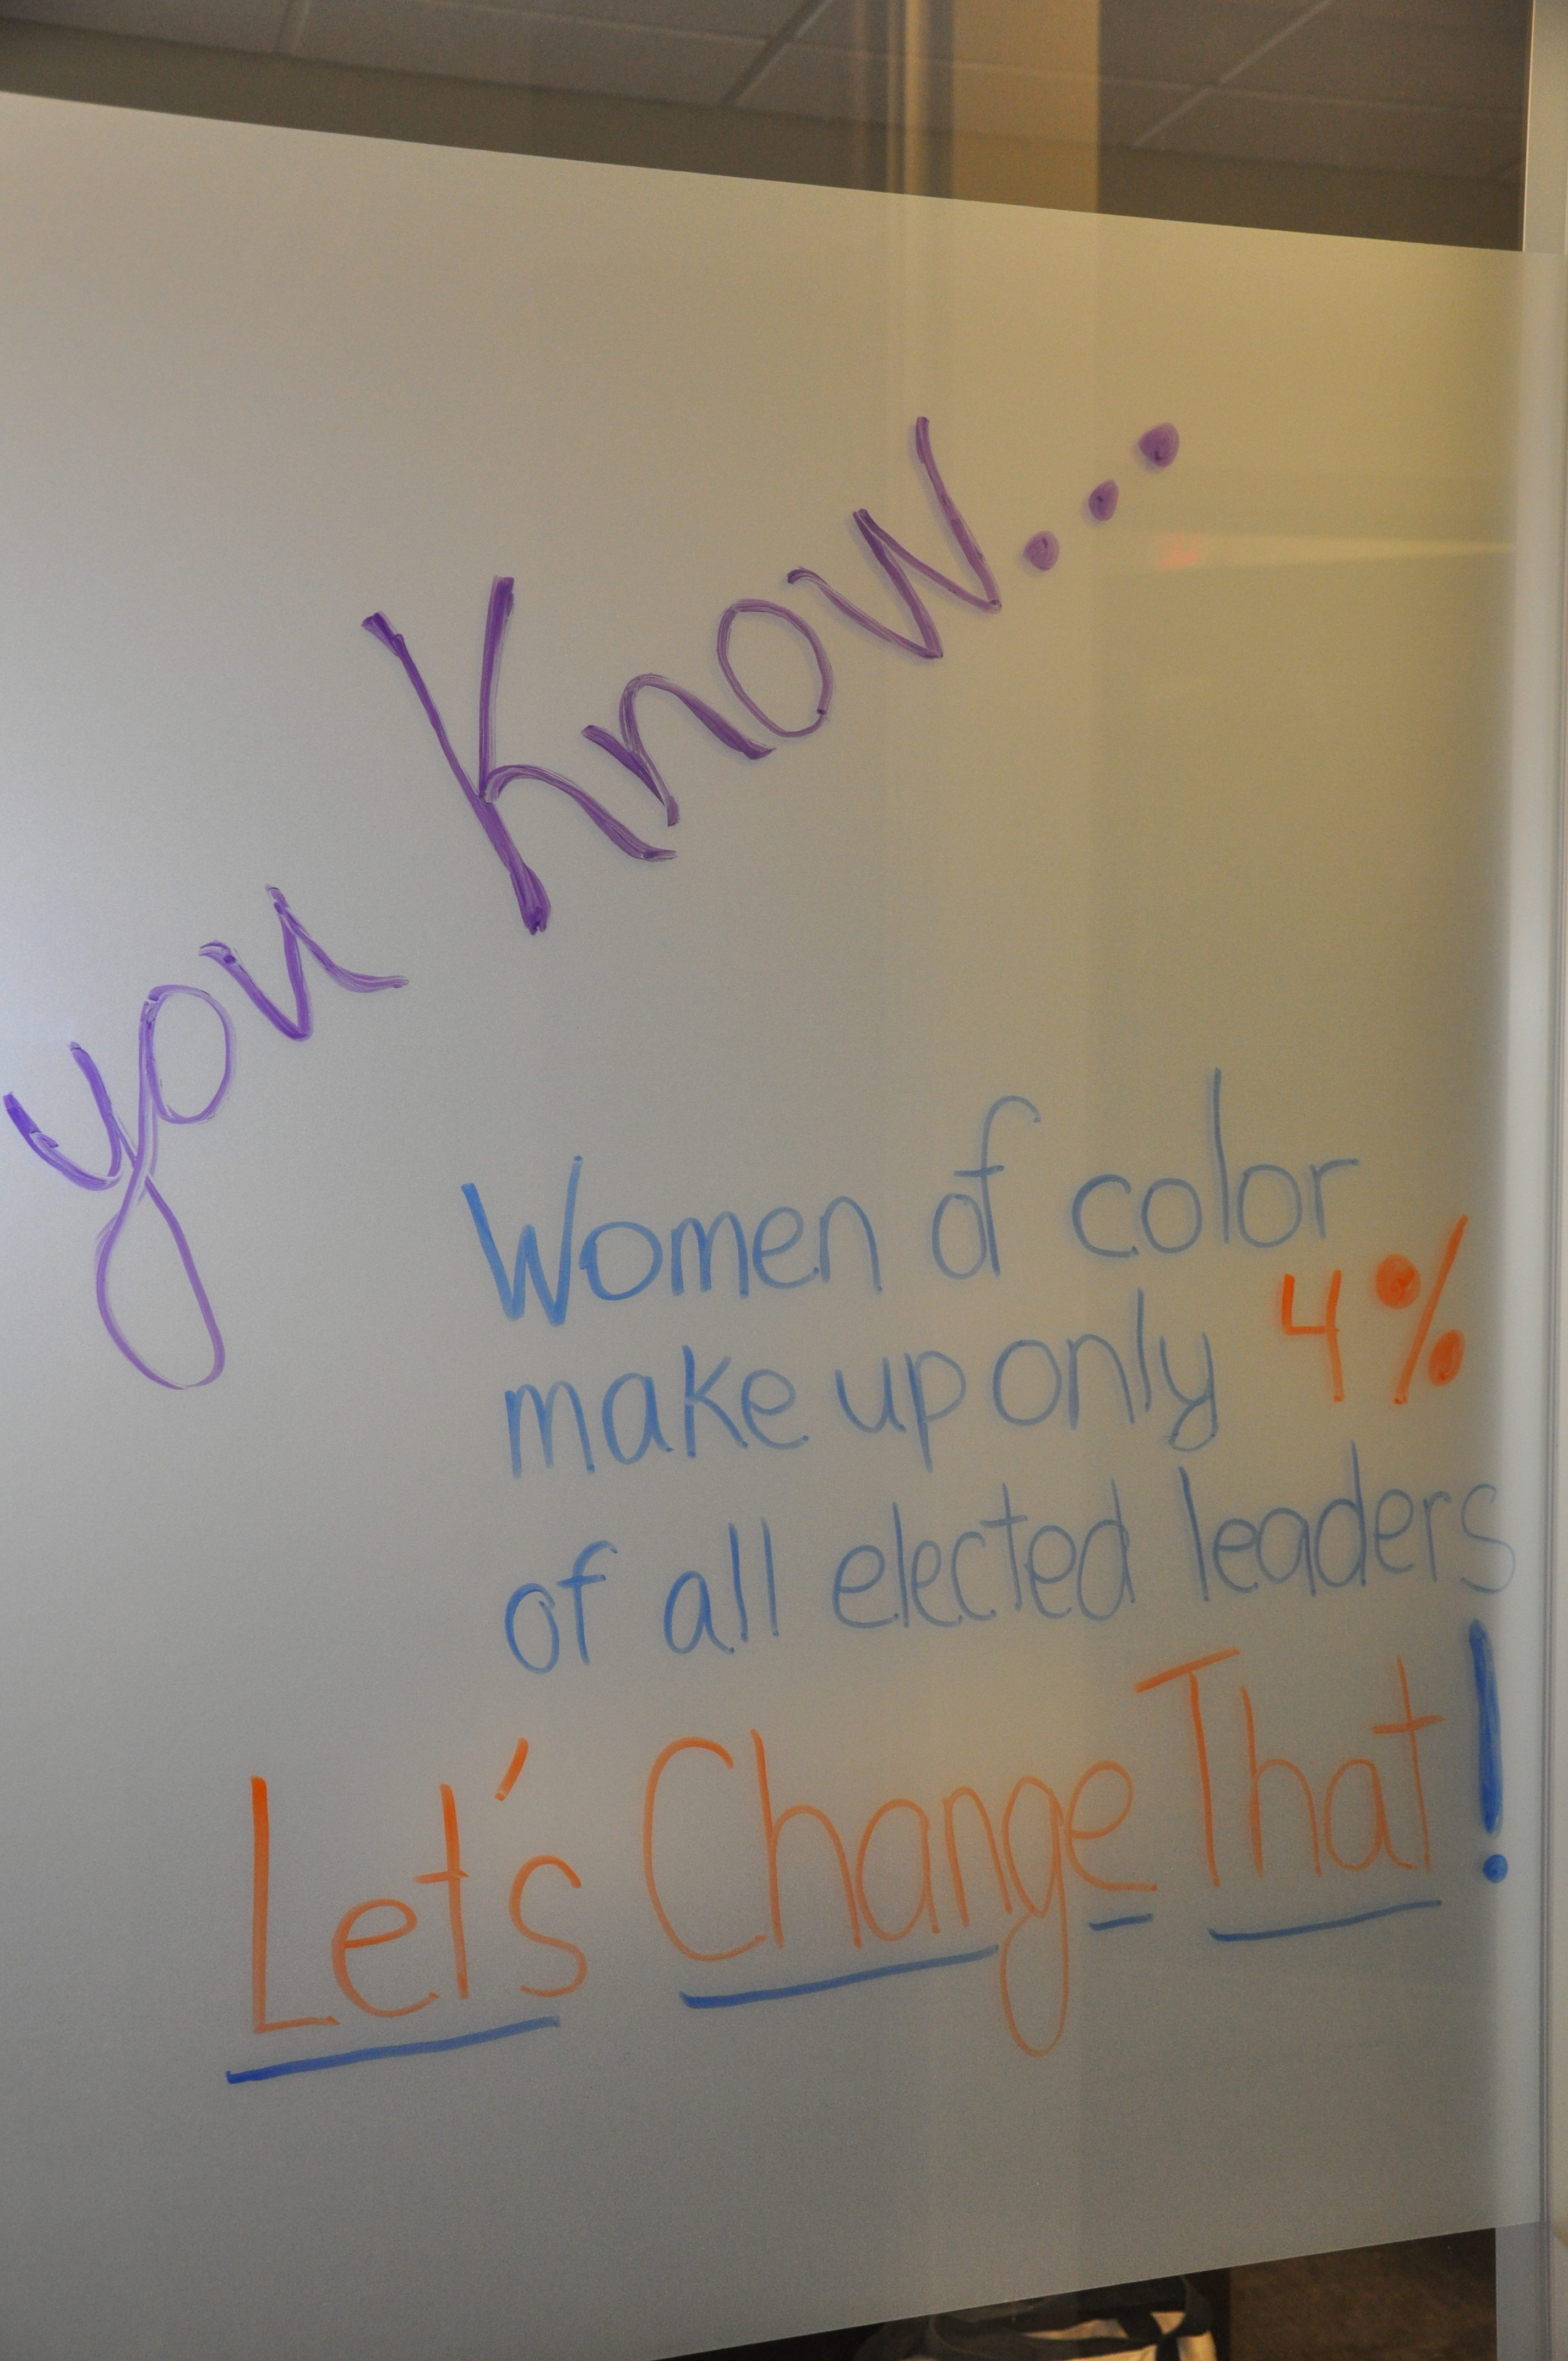 you Know...
Women of color
make up only 4%
of all elected leaders
Let's Change That!